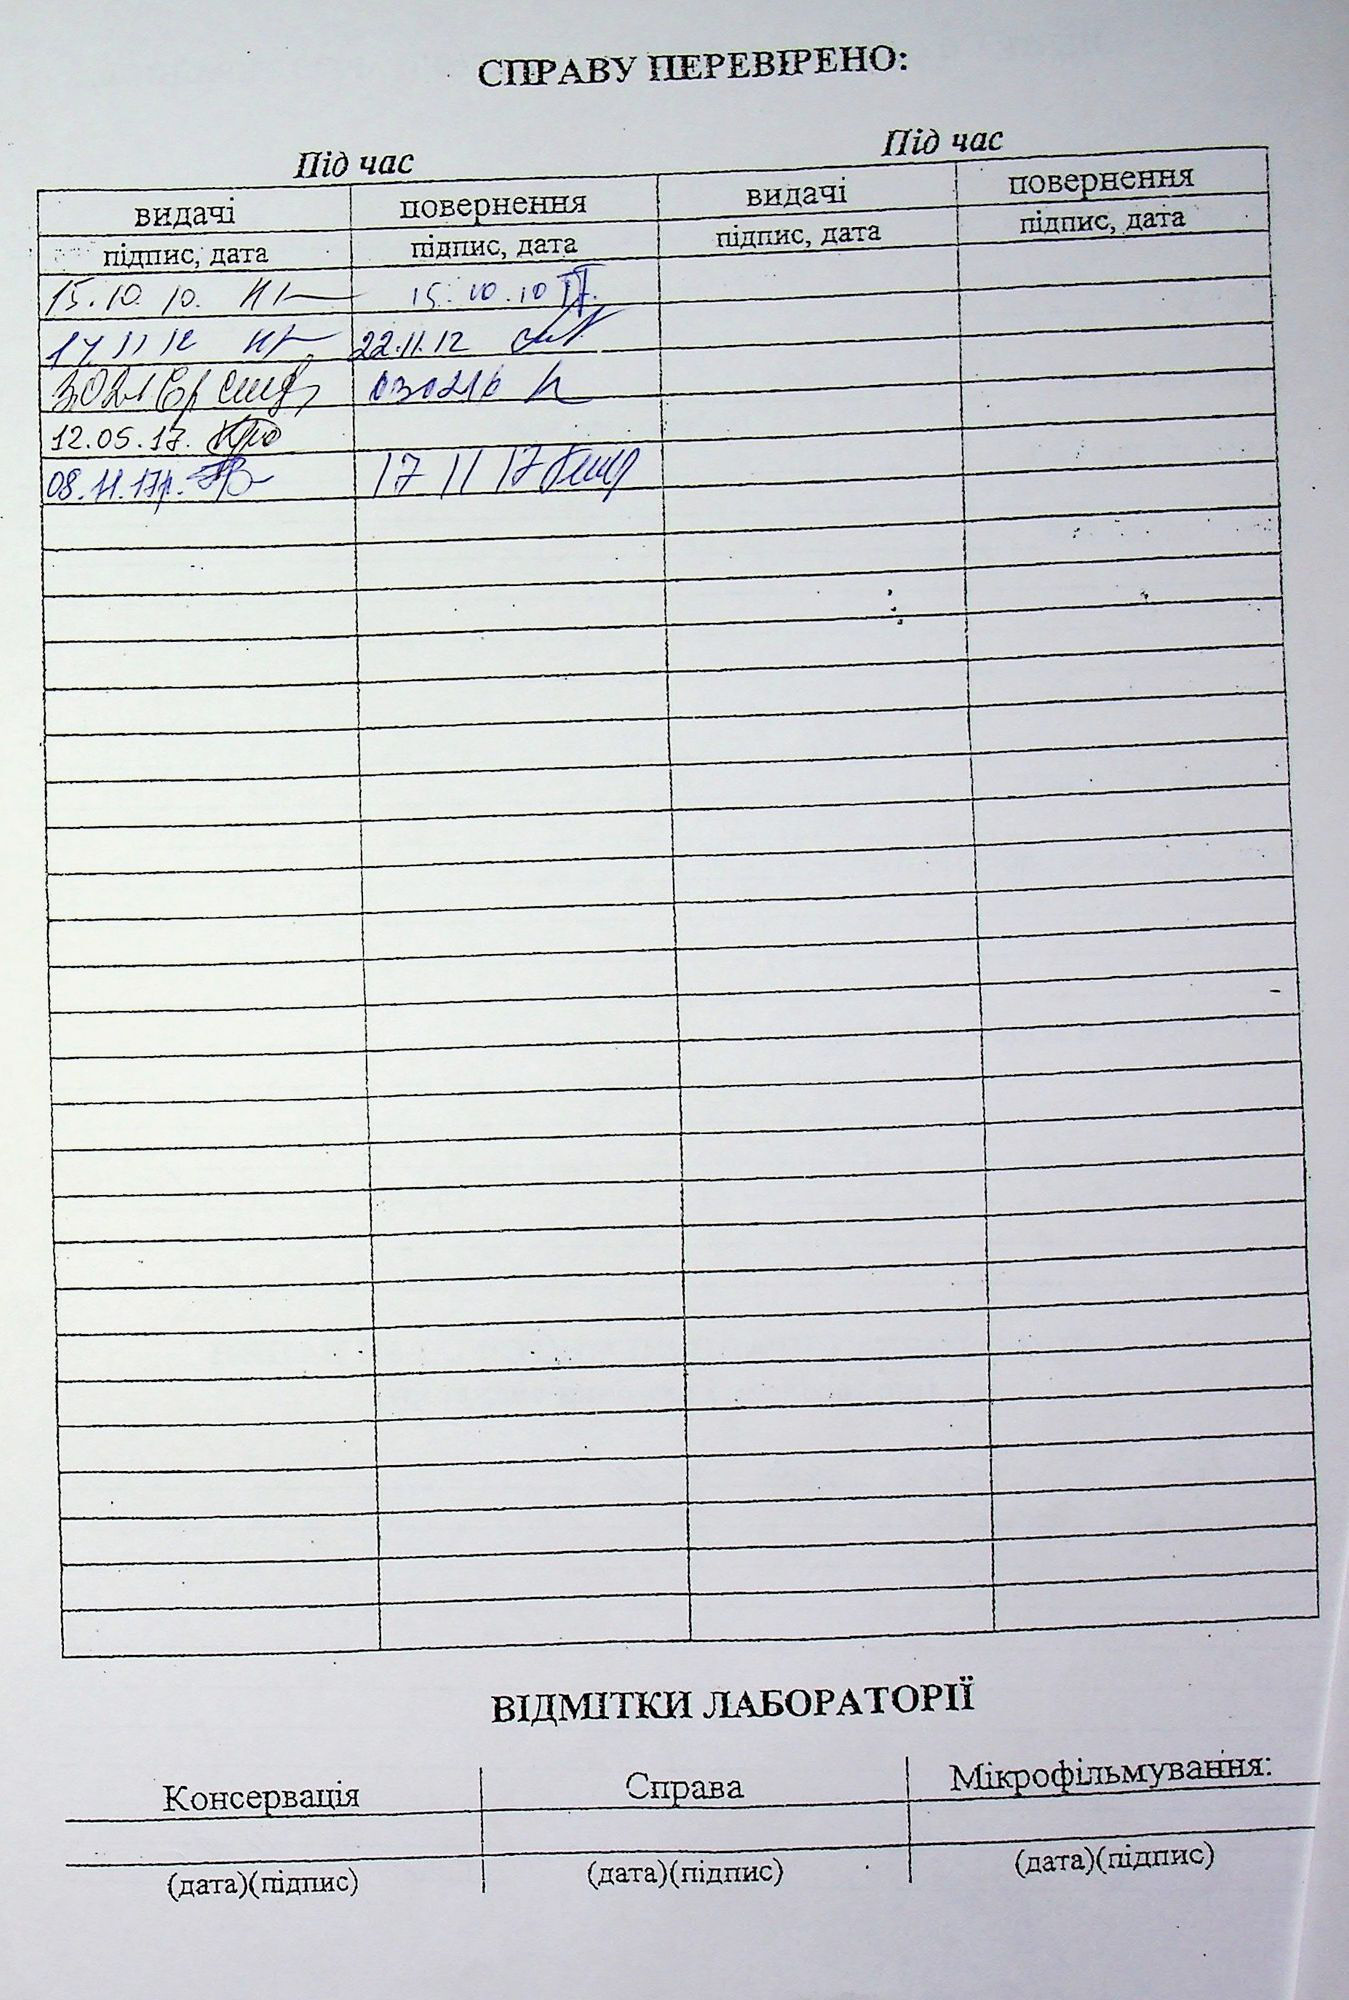 СПРАВУ ПЕРЕВІРЕНО:
Під час Під час
видачі повернення видачі повернення
підпис, дата підпис, дата підпис, дата підпис, дата
15.10.10. 15.10.10
17 11 12 22.11.12
030216
12.05.17.
08.11.17р. 17 11 17
ВІДМІТКИ ЛАБОРАТОРІЇ
Консервація Справа Мікрофільмування:
(дата)(підпис) (дата)(підпис) (дата)(підпис)